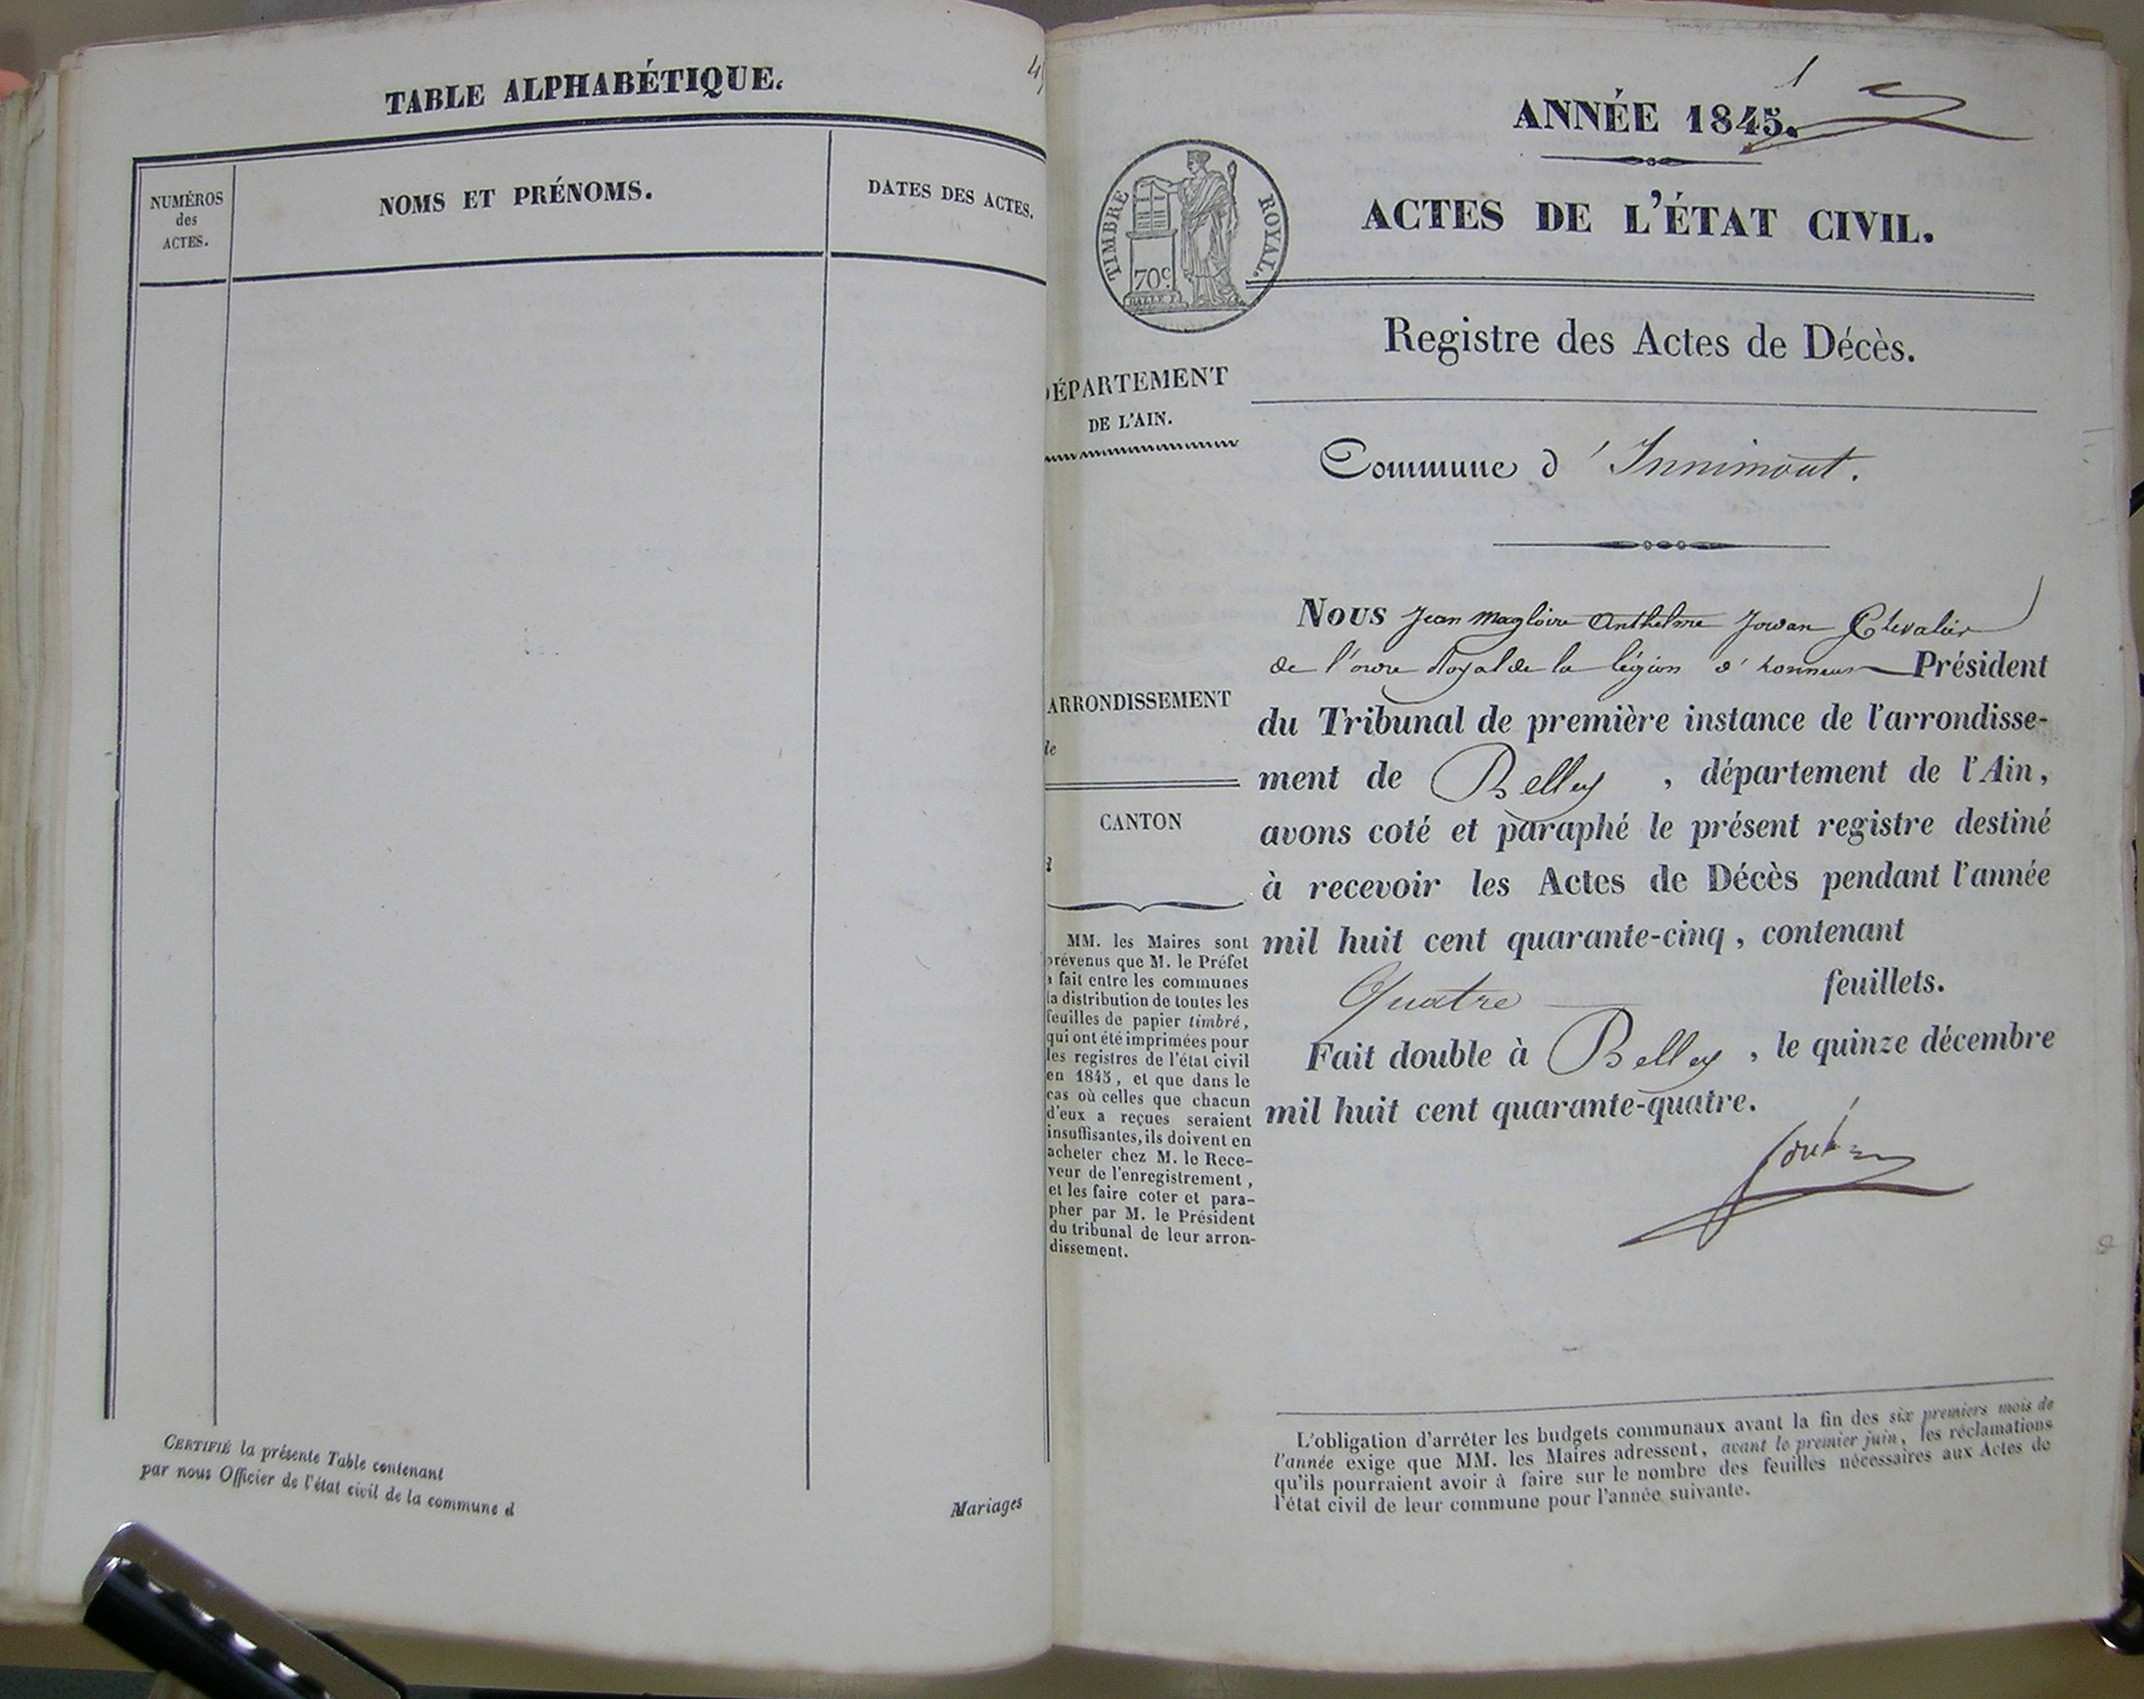 TABLE ALPHABÉTIQUE.
NUMÉROS
des
ACTES.
NOMS ET PRÉNOMS.
DATES DES ACTES.
CERTIFIÉ la présente Table contenant
par nous Officier de l'état civil de la commune d
Mariages
1
ANNÉE 1845.
ACTES DE L'ÉTAT CIVIL.
TIMBRE ROYAL.
70c.
Registre des Actes de Décès.
DÉPARTEMENT
DE L'AIN.
Commune d'Innimont.
Nous Jean Magloire Anthelme Chevalier
de l'ordre Royal de la légion d'honneur Président
du Tribunal de première instance de l'arrondisse-
ment de Belley, département de l'Ain,
avons coté et paraphé le présent registre destiné
à recevoir les Actes de Décès pendant l'année
mil huit cent quarante-cinq, contenant
Quatre feuillets.
Fait double à Belley, le quinze décembre
mil huit cent quarante-quatre.
ARRONDISSEMENT
de
CANTON
MM. les Maires sont
prévenus que M. le Préfet
a fait entre les communes
la distribution de toutes les
feuilles de papier timbré,
qui ont été imprimées pour
les registres de l'état civil
en 1845, et que dans le
cas où celles que chacun
d'eux a reçues seraient
insuffisantes, ils doivent en
acheter chez M. le Rece-
veur de l'enregistrement,
et les faire coter et para-
pher par M. le Président
du tribunal de leur arron-
dissement.
L'obligation d'arrêter les budgets communaux avant la fin des six premiers mois de
l'année exige que MM. les Maires adressent, avant le premier juin, les réclamations
qu'ils pourraient avoir à faire sur le nombre des feuilles nécessaires aux Actes de
l'état civil de leur commune pour l'année suivante.